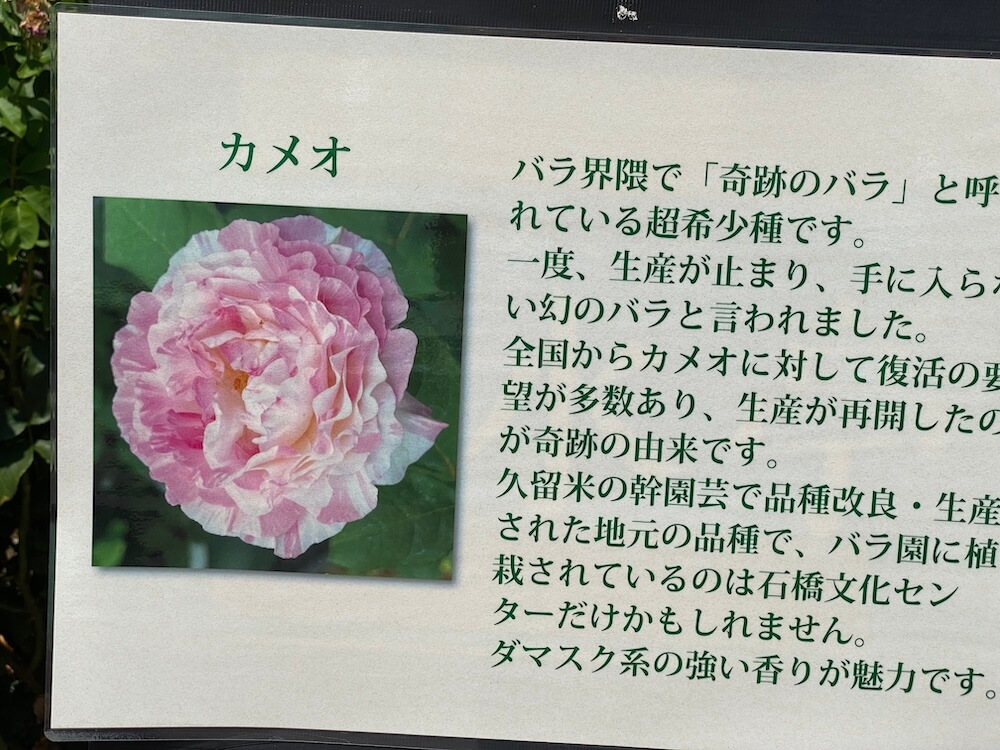 カメオ
バラ界隈で「奇跡のバラ」と呼
れている超希少種です。
一度、生産が止まり、手に入らな
い幻のバラと言われました。
全国からカメオに対して復活の要
望が多数あり、生産が再開したの
が奇跡の由来です。
久留米の幹園芸で品種改良・生産
された地元の品種で、バラ園に植
栽されているのは石橋文化セン
ターだけかもしれません。
ダマスク系の強い香りが魅力です。